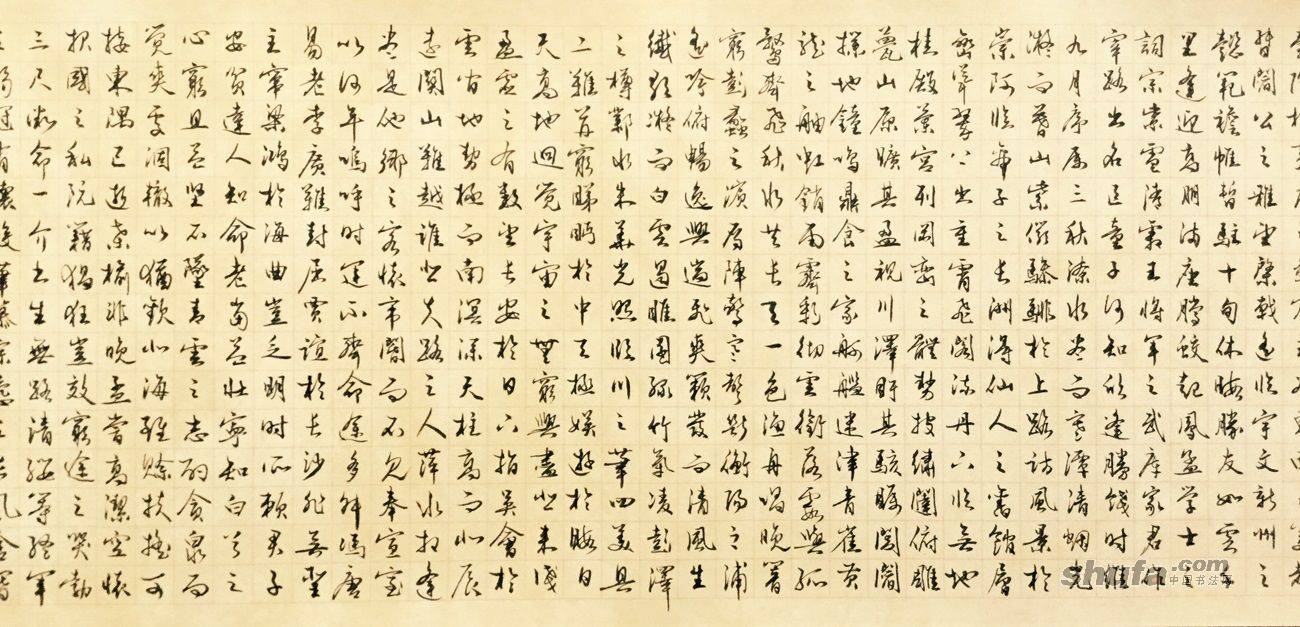 督閻公之雅望棨戟遙臨宇文新州之
懿範襜帷暫駐十旬休暇勝友如雲千
里逢迎高朋滿座騰蛟起鳳孟學士之
詞宗紫電清霜王將軍之武庫家君作
宰路出名區童子何知躬逢勝餞時維
九月序屬三秋潦水盡而寒潭清煙光
凝而暮山紫儼驂騑於上路訪風景於
崇阿臨帝子之長洲得仙人之舊館層
巒聳翠上出重霄飛閣流丹下臨無地
桂殿蘭宮列岡巒之體勢披繡闥俯雕
甍山原曠其盈視川澤盱其駭矚閭閻
撲地鐘鳴鼎食之家舸艦迷津青雀黃
龍之舳虹銷雨霽彩徹雲衢落霞與孤
鶩齊飛秋水共長天一色漁舟唱晚響
窮彭蠡之濱雁陣驚寒聲斷衡陽之浦
遙吟俯暢逸興遄飛爽籟發而清風生
纖歌凝而白雲遏睢園綠竹氣凌彭澤
之樽鄴水朱華光照臨川之筆四美具
二難并窮睇眄於中天極娛遊於暇日
天高地迥覺宇宙之無窮興盡悲來識
盈虛之有數望長安於日下指吳會於
雲間地勢極而南溟深天柱高而北辰
遠關山難越誰悲失路之人萍水相逢
盡是他鄉之客懷帝閽而不見奉宣室
以何年嗚呼時運不齊命途多舛馮唐
易老李廣難封屈賈誼於長沙非無聖
主竄梁鴻於海曲豈乏明時所賴君子
安貧達人知命老當益壯寧知白首之
心窮且益堅不墜青雲之志酌貪泉而
覺爽處涸轍以猶歡北海雖賒扶搖可
接東隅已逝桑榆非晚孟嘗高潔空懷
報國之私阮籍猖狂豈效窮途之哭勃
三尺微命一介書生無路請纓等終軍
shufa.com
中国书法网